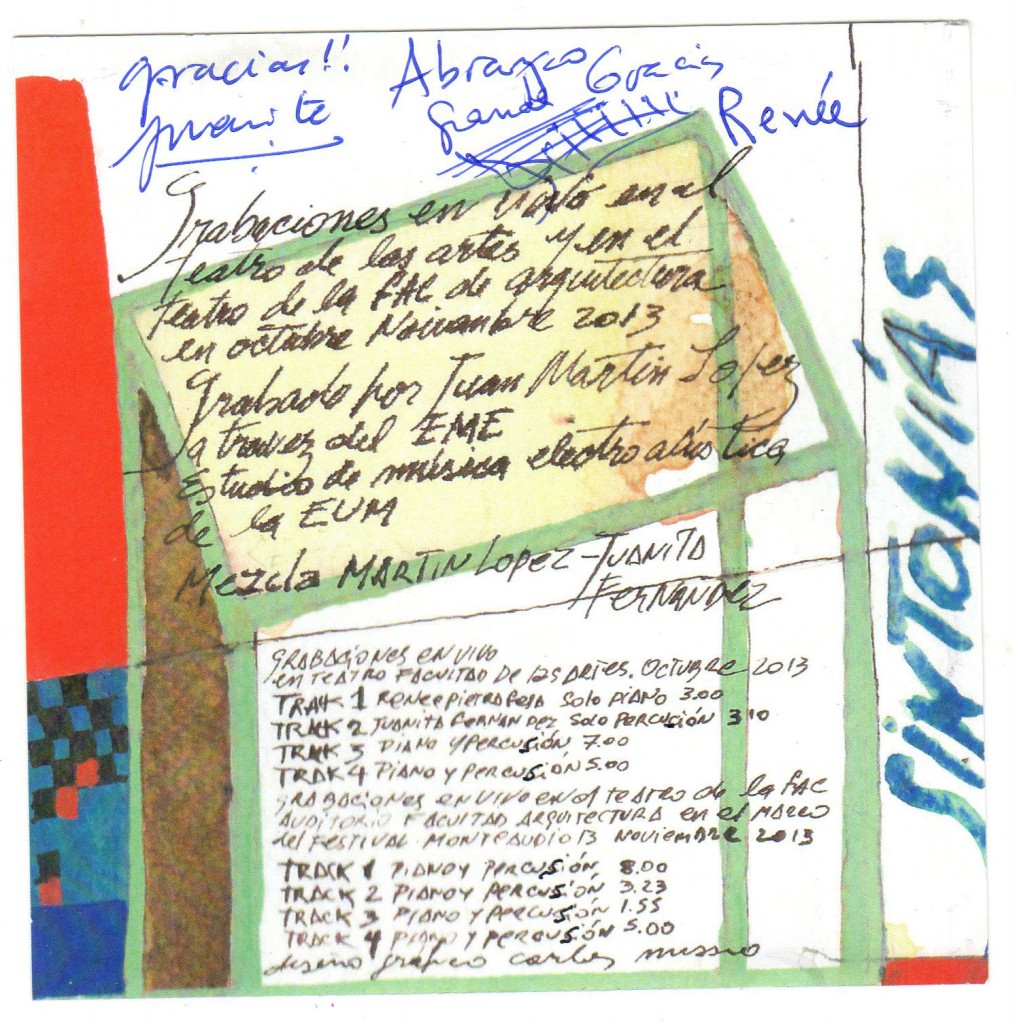 gracias!!
Juanita
Abrazo
grande Gracias
Renée
Grabaciones en vivo en el
teatro de las artes y en el
teatro de la FAC de arquitectura
en octubre Noviembre 2013
Grabado por Juan Martin Lopez
a travez del EME
Estudio de música electroacústica
de la EUM
Mezcla MARTIN LOPEZ - JUANITA
FERNANDEZ
SINTONÍAS
GRABACIONES EN VIVO
en TEATRO FACULTAD DE las ARTES. OCTUBRE 2013
TRAK 1 RENEE PIETRAFESA SOLO PIANO 3.00
TRACK 2 JUANITA FERNANDEZ SOLO PERCUSIÓN 3 10
TRAKK 3 PIANO Y PERCUSIÓN 7.00
TRAK 4 PIANO Y PERCUSIÓN 5.00
GRABACIONES EN VIVO EN el TEATRO de la FAC
AUDITORIO FACULTAD ARQUITECTURA en el MARCO
del FESTIVAL MONTEAUDIO 13 NOVIEMBRE 2013
TRACK 1 PIANO Y PERCUSIÓN 8.00
TRACK 2 PIANO Y PERCUSIÓN 3.23
TRACK 3 PIANO Y PERCUSIÓN 1.55
TRACK 4 PIANO Y PERCUSIÓN 5.00
diseño grafico carlos musso